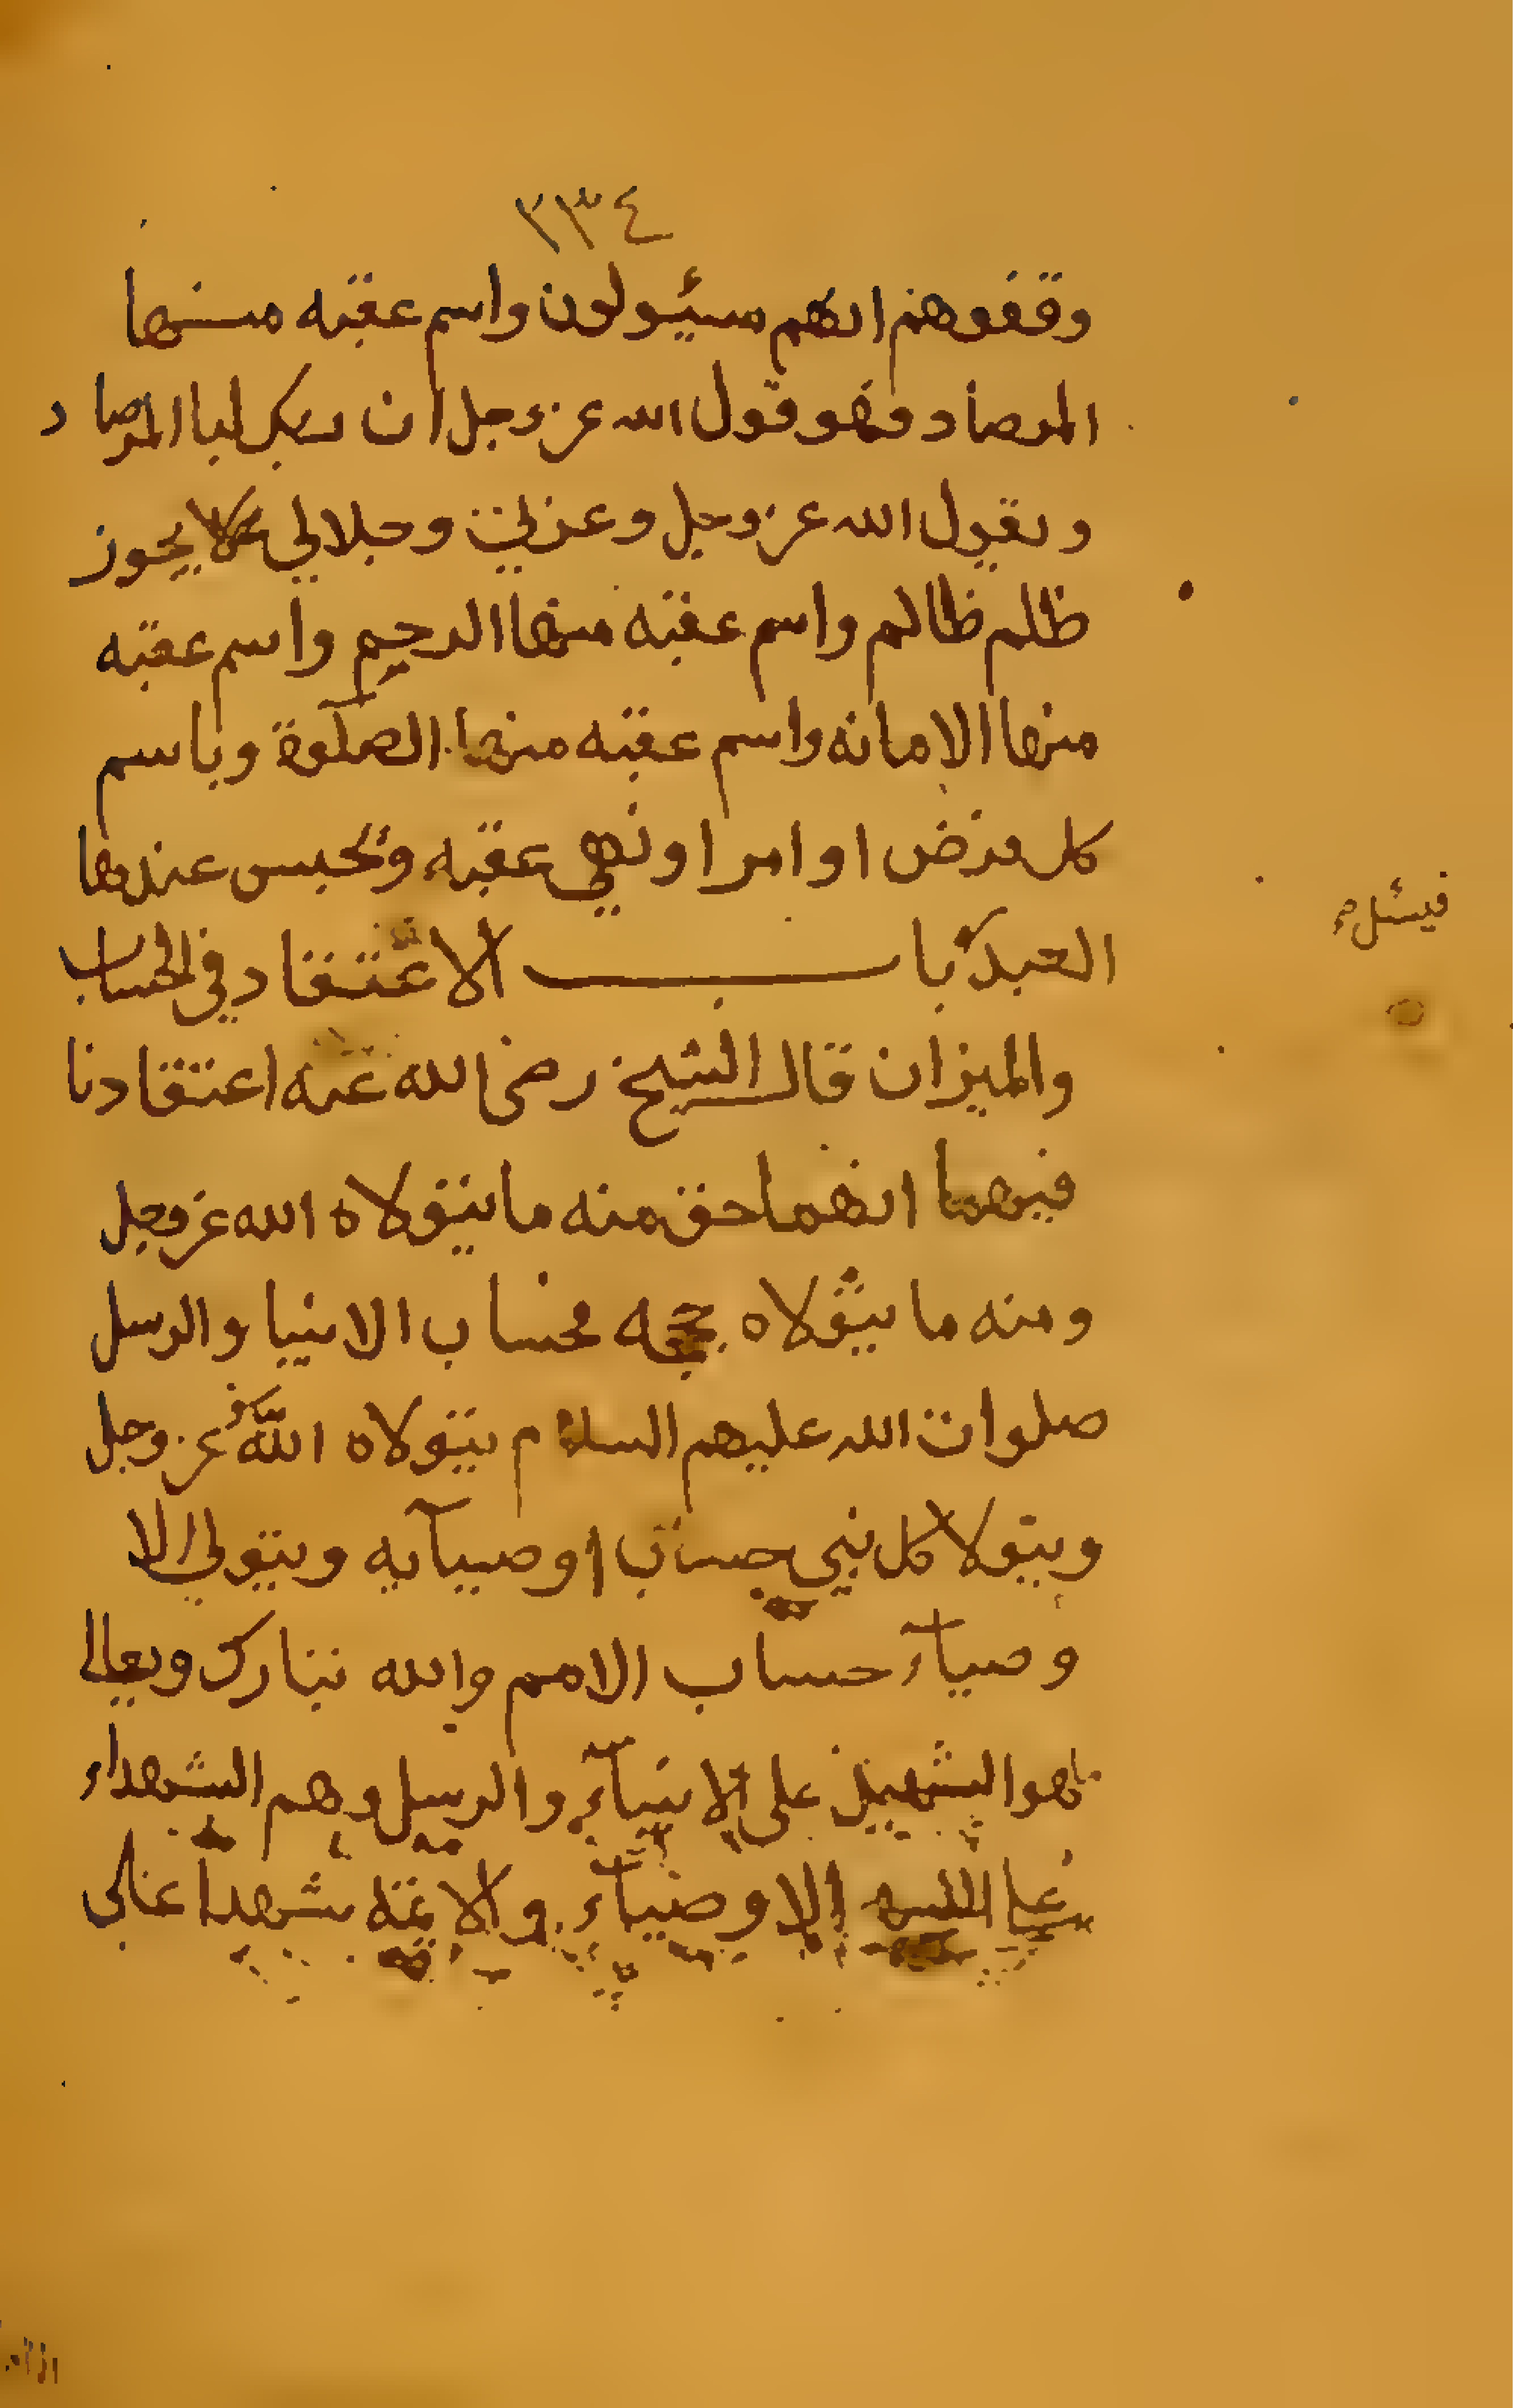 ٢٣٤
وقفوهم انهم مسئولون واسم عقبه منها
المرصاد فهو قول الله عز وجل ان ربك لبا المرصاد
ويقول الله عز وجل وعزتي وجلالي لا يجوز
ظلم ظالم واسم عقبه منها الرحم واسم عقبه
منها الامانه واسم عقبه منها الصلوة وباسم
كل فرض او امر او نهي عقبه ويحبس عندها
العبد باب الاعتقاد في الحساب
فيسئل
والميزان قال الشيخ رضي الله عنه اعتقادنا
فيهما انهما حق منه ما يتولاه الله عز وجل
ومنه ما يتولاه حججه فحساب الانبيا والرسل
صلوات الله عليهم السلام يتولاه الله عز وجل
ويتولا كل نبي حساب اوصيآيه ويتولى الا
وصيآء حساب الامم والله تبارك وتعالى
هو الشهيد على الانبيآء والرسل وهم الشهداء
على الاوصيآء والائمة شهدا على